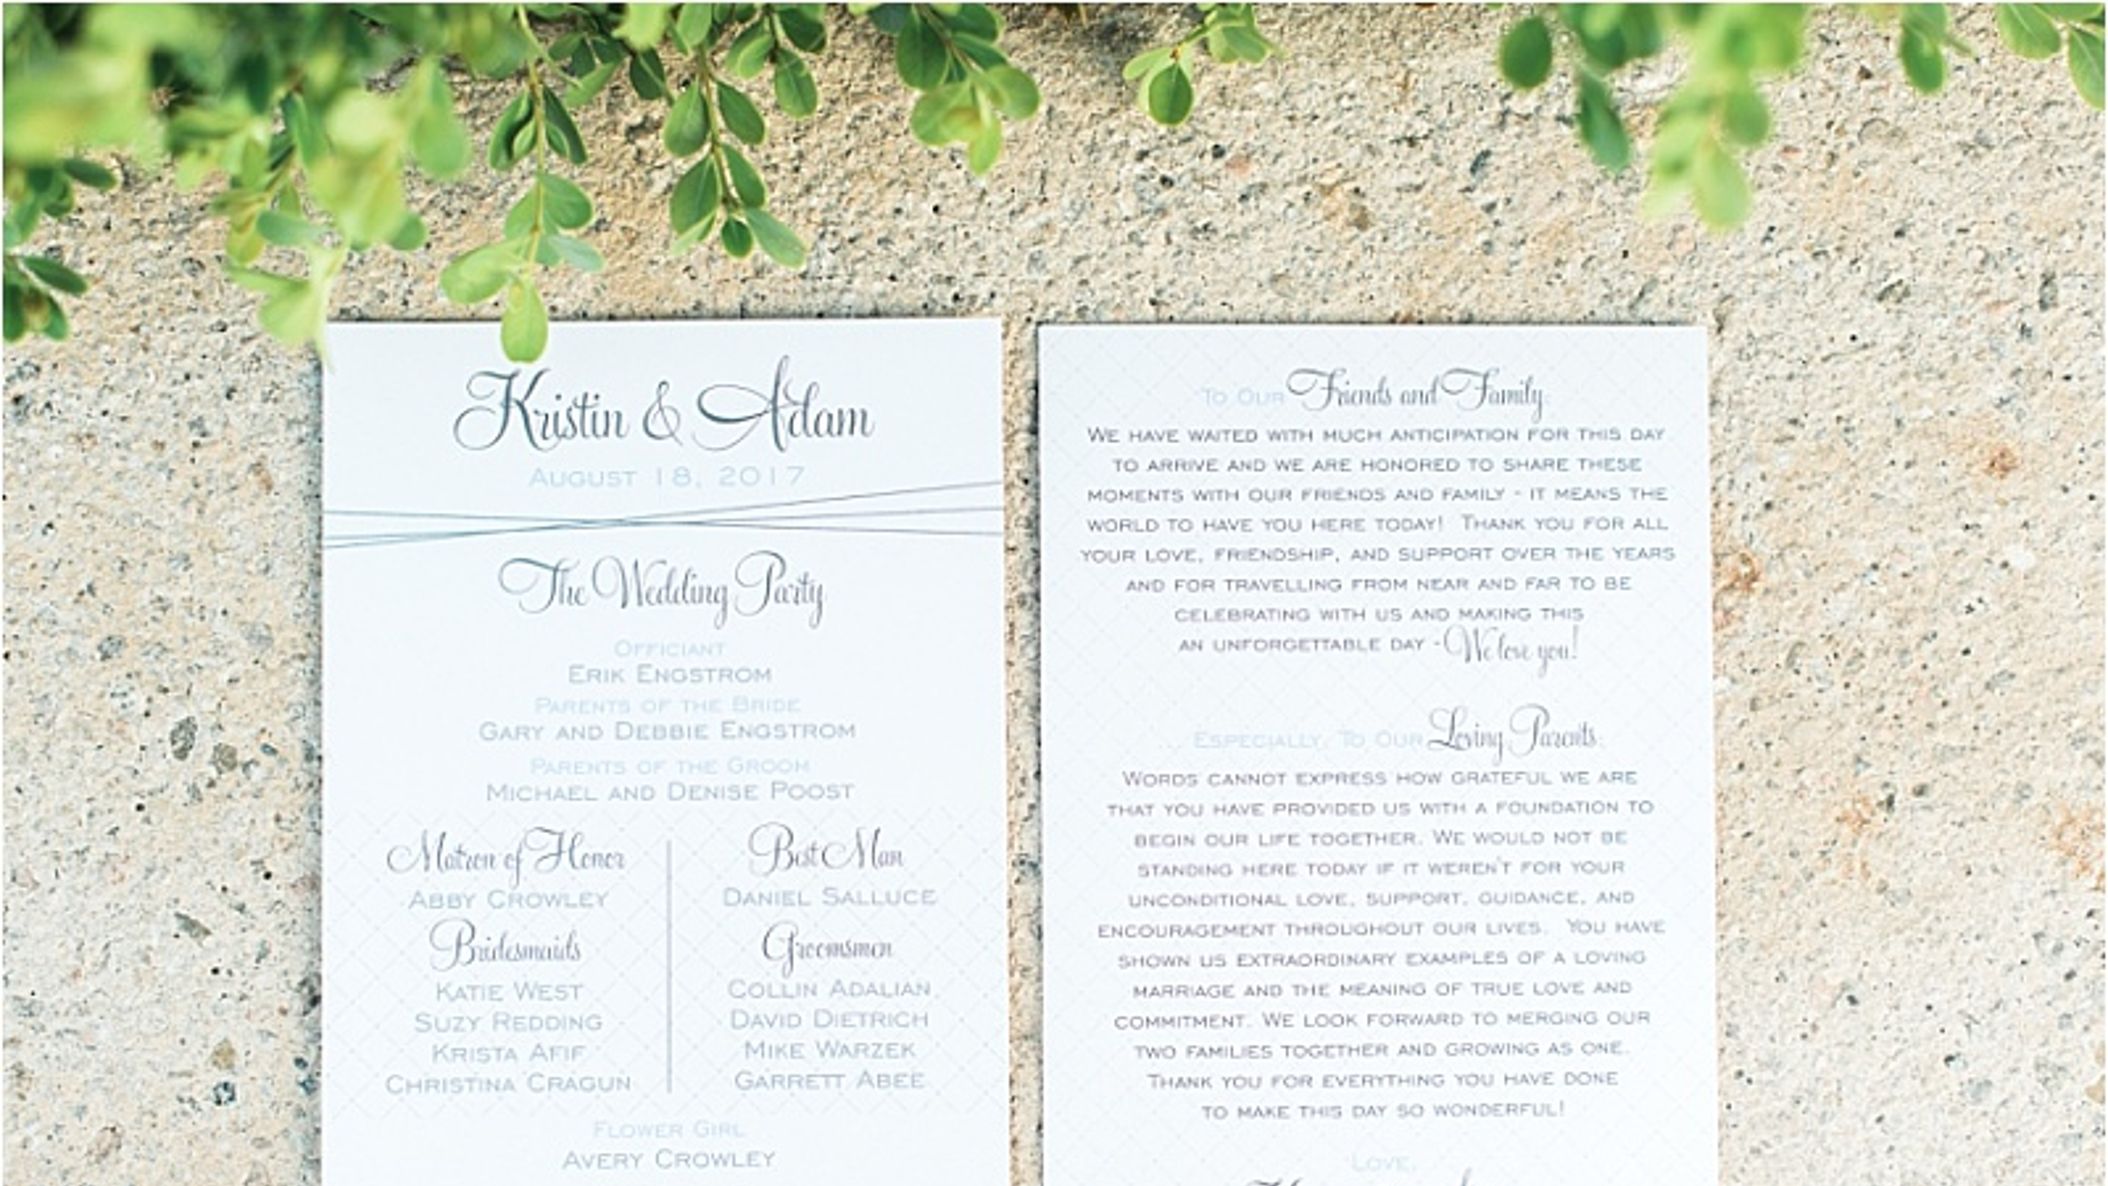 Kristin & Adam
August 18, 2017
The Wedding Party
Officiant
Erik Engstrom
Parents of the Bride
Gary and Debbie Engstrom
Parents of the Groom
Michael and Denise Poost
Matron of Honor
Abby Crowley
Bridesmaids
Katie West
Suzy Redding
Krista Afif
Christina Cragun
Best Man
Daniel Salluce
Groomsmen
Collin Adalian
David Dietrich
Mike Warzek
Garrett Abee
Flower Girl
Avery Crowley
To Our Friends and Family:
We have waited with much anticipation for this day
to arrive and we are honored to share these
moments with our friends and family - it means the
world to have you here today! Thank you for all
your love, friendship, and support over the years
and for travelling from near and far to be
celebrating with us and making this
an unforgettable day - We love you!
... Especially, To Our Loving Parents:
Words cannot express how grateful we are
that you have provided us with a foundation to
begin our life together. We would not be
standing here today if it weren't for your
unconditional love, support, guidance, and
encouragement throughout our lives. You have
shown us extraordinary examples of a loving
marriage and the meaning of true love and
commitment. We look forward to merging our
two families together and growing as one.
Thank you for everything you have done
to make this day so wonderful!
Love,